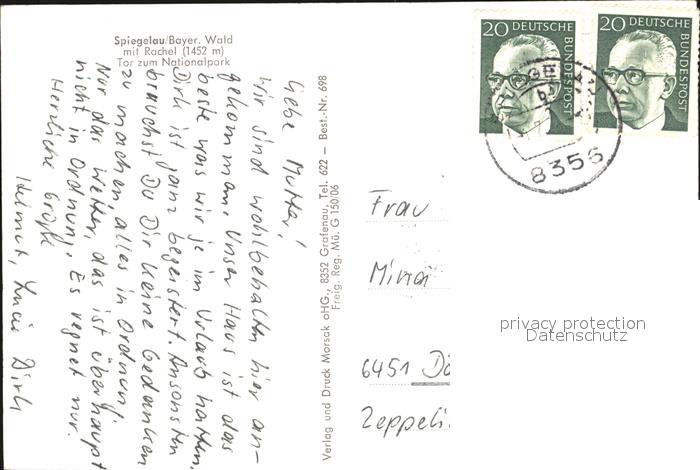 Spiegelau/Bayer. Wald
mit Rachel (1452 m)
Tor zum Nationalpark
Liebe Mutter!
Wir sind wohlbehalten hier an-
gekommen. Unser Haus ist das
beste was wir je im Urlaub hatten.
Dirk ist ganz begeistert. Ansonsten
brauchst Du Dir keine Gedanken
zu machen, alles in Ordnung.
Nur das Wetter, das ist überhaupt
nicht in Ordnung. Es regnet nur.
Herzliche Grüße
Helmut, Lucie Dirk
Verlag und Druck Morsak oHG., 8352 Grafenau, Tel. 622 — Best.-Nr. 698
Freig. Reg. Mü. G 150/06
20 DEUTSCHE BUNDESPOST
20 DEUTSCHE BUNDESPOST
b
8356
Frau
6451 Dö
Zeppeli
privacy protection
Datenschutz